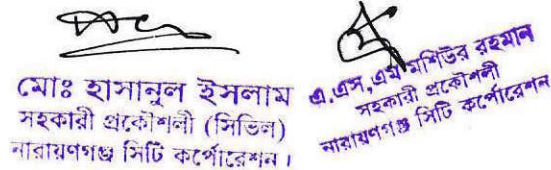 মোঃ হাসানুল ইসলাম
সহকারী প্রকৌশলী (সিভিল)
নারায়ণগঞ্জ সিটি কর্পোরেশন।
এ.এস,এম মশিউর রহমান
সহকারী প্রকৌশলী
নারায়ণগঞ্জ সিটি কর্পোরেশন